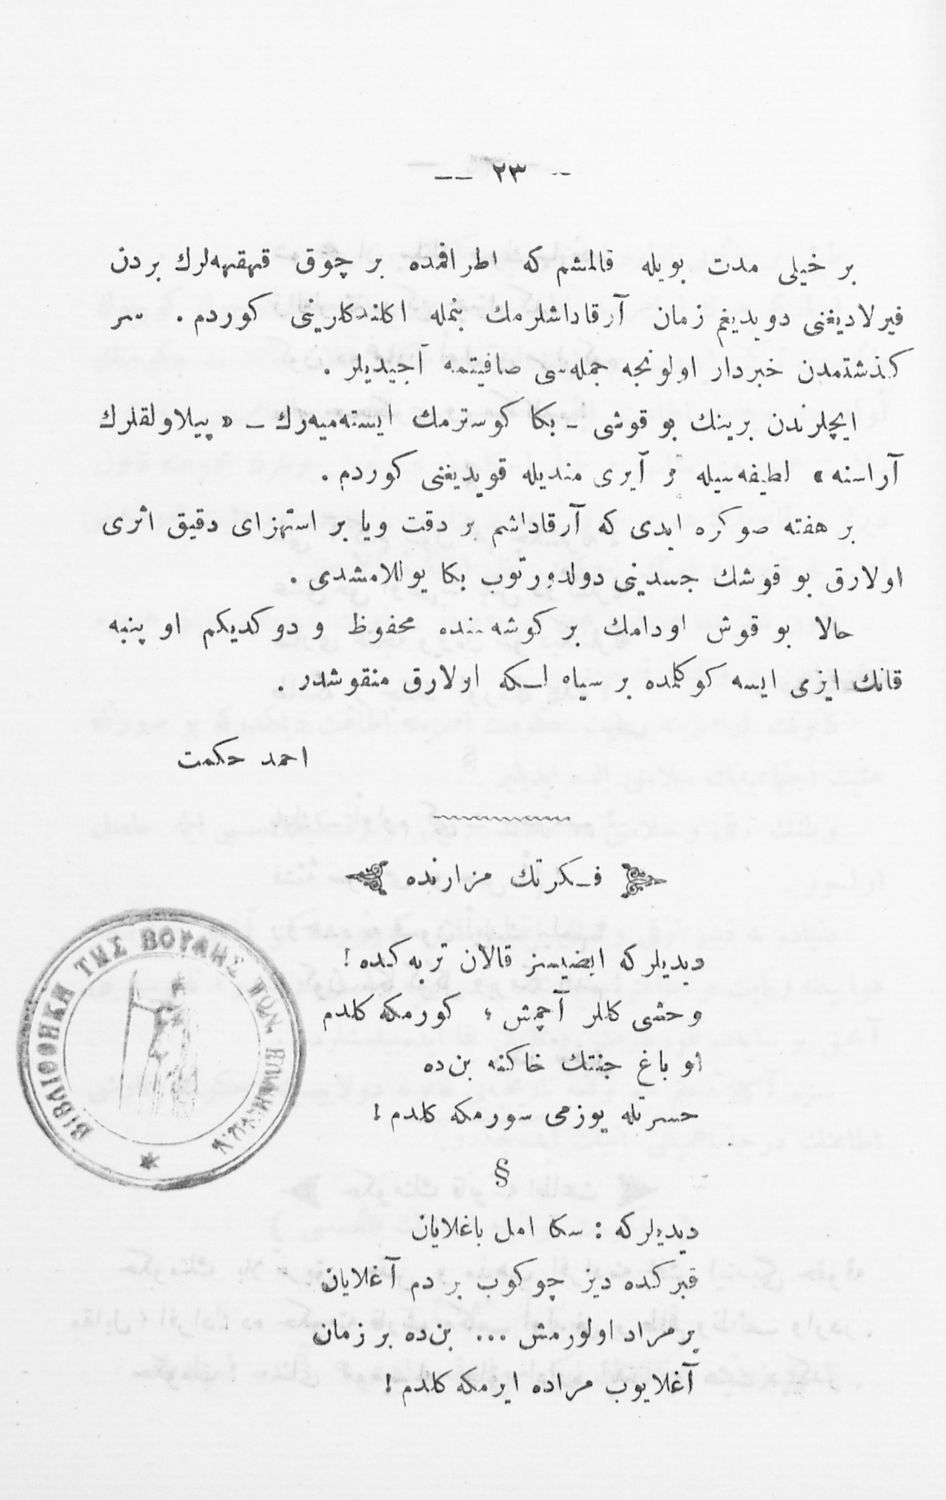 — ٢٣ —
بر خیلی مدت بویله قالمشم که اطرافمده بر چوق قهقهه‌لرك بردن
فیرلادیغنی دویدیغم زمان آرقاداشلرمك بنمله اكلندكلرینی كوردم . سر
كذشتمدن خبردار اولونجه جمله‌سی صافیتمه آجیدیلر .
ایچلرندن برینك بو قوشی ـ بكا كوسترمك ایسته‌میه‌رك ـ « پیلاولقلرك
آراسنه » لطیفه‌سیله بر آیری مندیله قویدیغنی كوردم .
بر هفته صوكره ایدی كه آرقاداشم بر دقت ویا بر استهزای دقیق اثری
اولارق بو قوشك جسدینی دولدورتوب بكا یوللامشدی .
حالا بو قوش اودامك بر كوشه‌سنده محفوظ و دوكدیكم او پنبه
قانك ایزی ایسه كوكلمده بر سیاه لـكه اولارق منقوشدر .
احمد حكمت
فـكرتك مزارنده
دیدیلركه ایصیسز قالان تربه‌كده !
وحشی كللر آچمش ؛ كورمكه كلدم
او باغ جنتك خاكنه بن‌ده
حسرتله یوزمی سورمكه كلدم !
§
دیدیلركه : سكا امل باغلایان
قبركده دیز چوكوب بردم آغلایان
برمراد اولورمش ... بن‌ده بر زمان
آغلایوب مراده ایرمكه كلدم !
ΒΙΒΛΙΟΘΗΚΗ ΤΗΣ ΒΟΥΛΗΣ ΤΩΝ ΕΛΛΗΝΩΝ